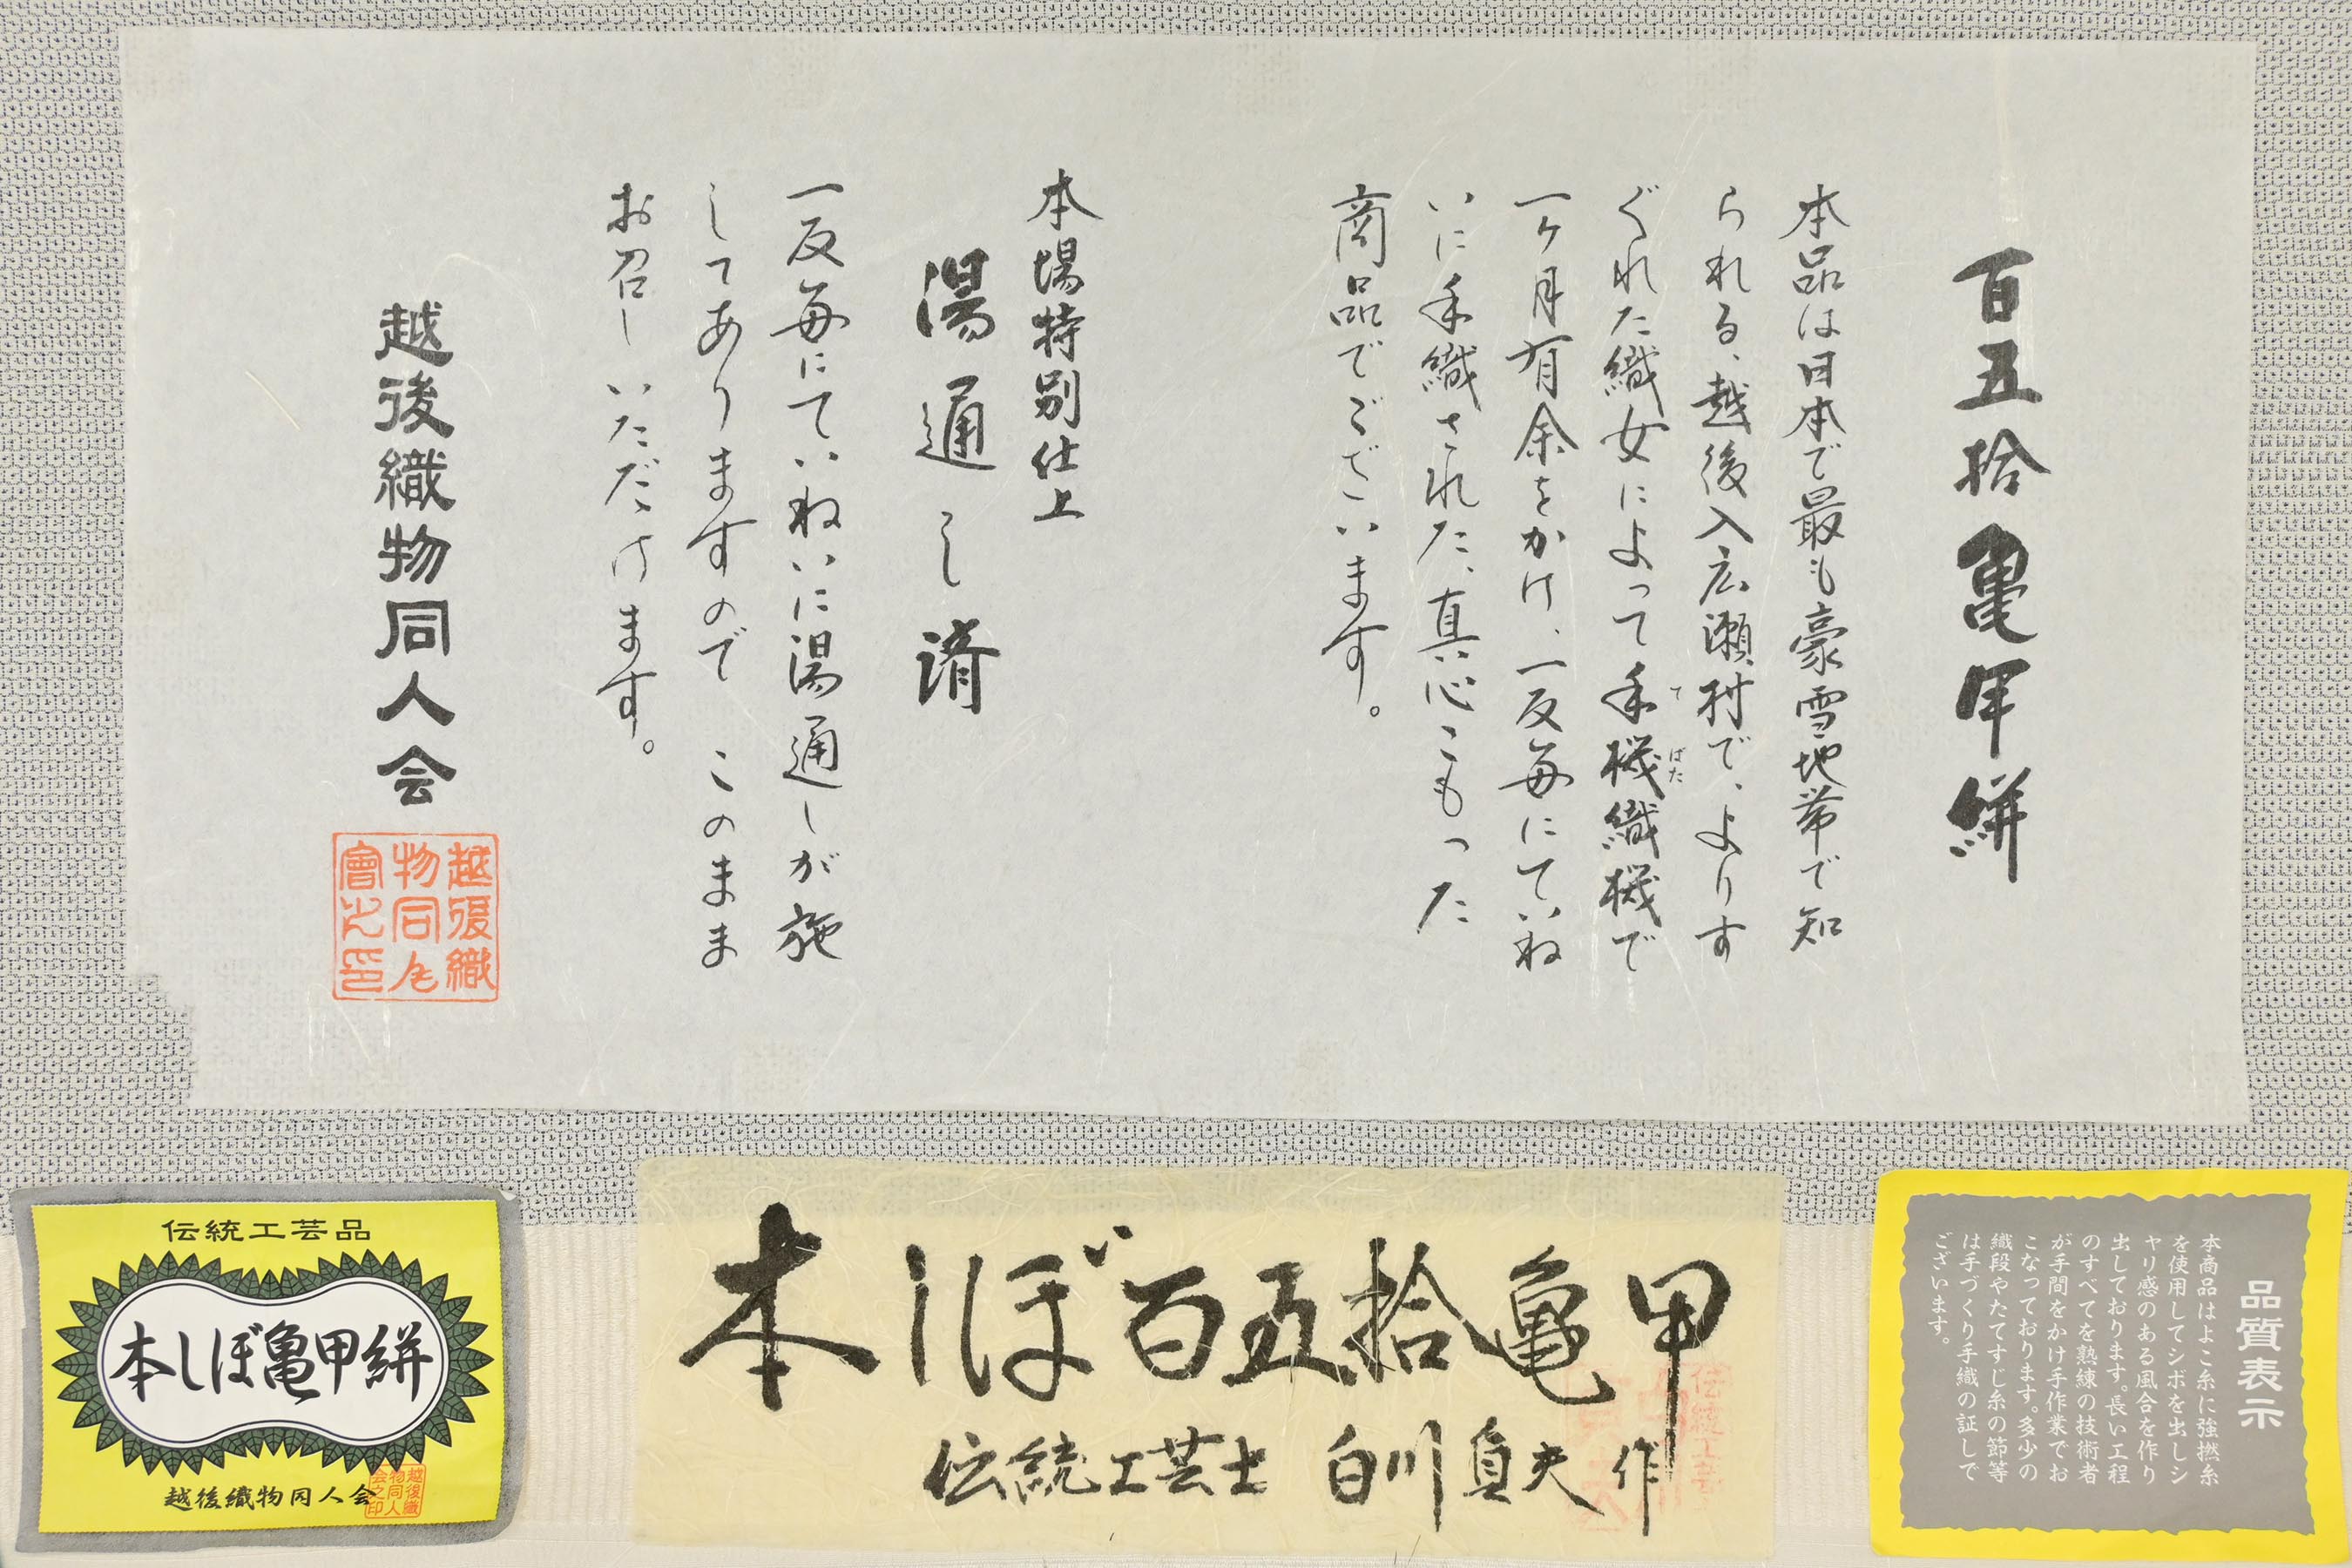 百五拾亀甲絣
本品は日本で最も豪雪地帯で知
られる、越後入広瀬村で、よりす
ぐれた織女によって手機織機で
て ばた
一ヶ月有余をかけ、一反毎にていね
いに手織された、真心こもった
商品でございます。
本場特別仕上
湯通し済
一反毎にていねいに湯通しが施
してありますので このまま
お召しいただけます。
越後織物同人会
越後織
物同人
會之印
伝統工芸品
本しぼ亀甲絣
越後織物同人会
越後織
物同人
会之印
本しぼ百五拾亀甲
伝統工芸士 白川貞夫作
伝統工芸士
品質表示
本商品はよこ糸に強撚糸
を使用してシボを出しシ
ャリ感のある風合を作り
出しております。長い工程
のすべてを熟練の技術者
が手間をかけ手作業でお
こなっております。多少の
織段やたてすじ糸の節等
は手づくり手織の証しで
ございます。